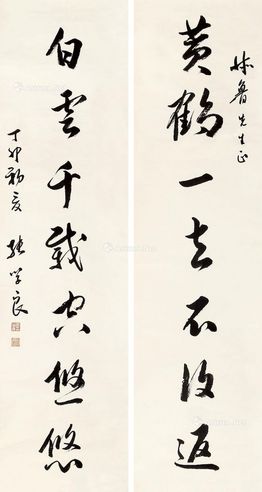 林鲁先生正
黄鹤一去不復返
白雲千載空悠悠
丁卯初夏 張学良